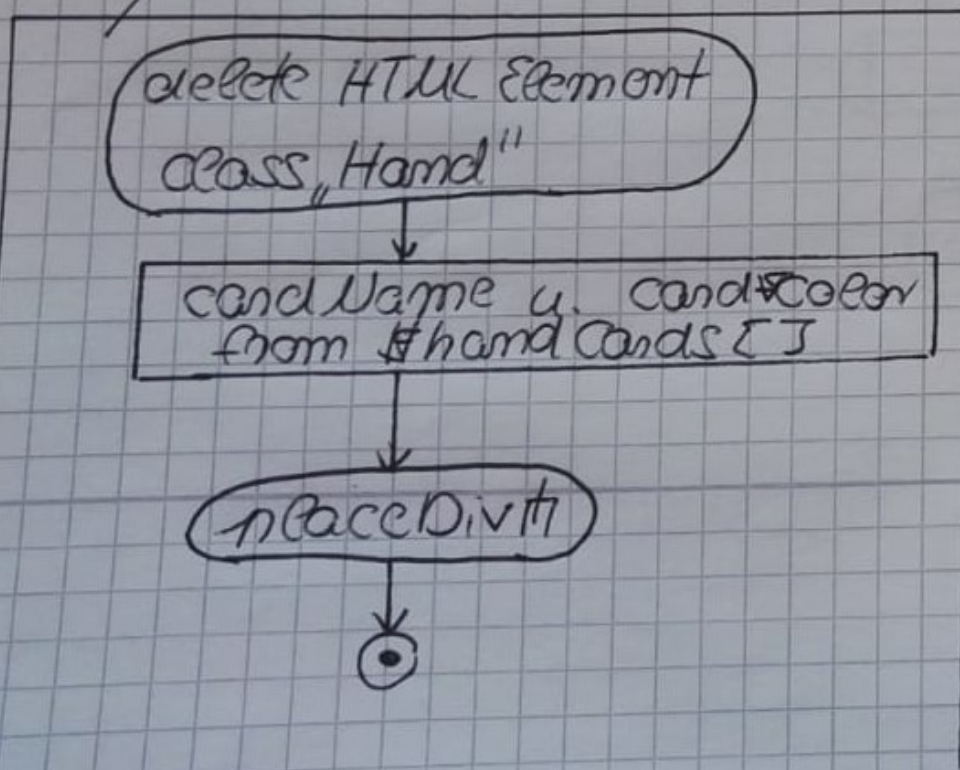 delete HTML Element
class „Hand"
cardName u. cardcolor
from handCards[]
placeDiv